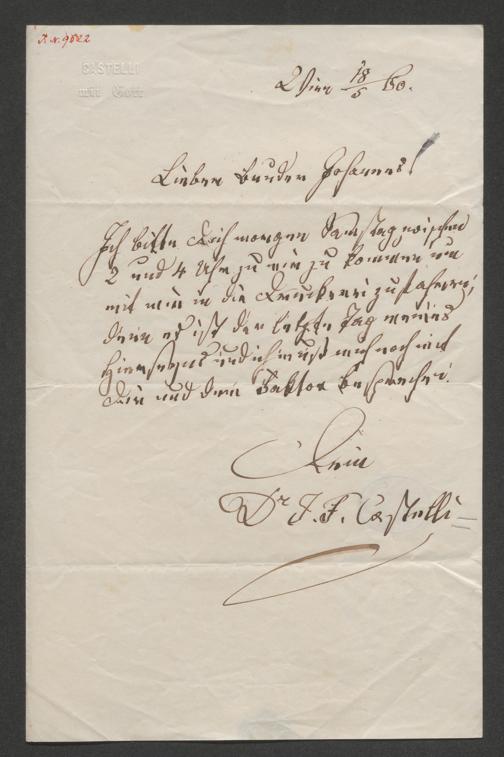 I.N. 9522
CASTELLI
mit Gott
Wien 18/5 60.
Lieber Bruder Johannes!
Ich bitte Dich morgen Samstag zwischen
2 und 4 Uhr zu mir zu kommen um
mit mir in die Druckerei zu fahren;
denn es ist der letzte Tag meines
Hierseyns und ich muß mich noch mit
Dir und dem Faktor besprechen.
Dein
Dr I. F. Castelli